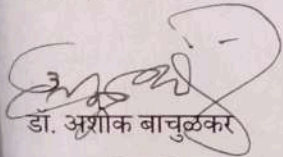 डॉ. अशोक बाचुळकर